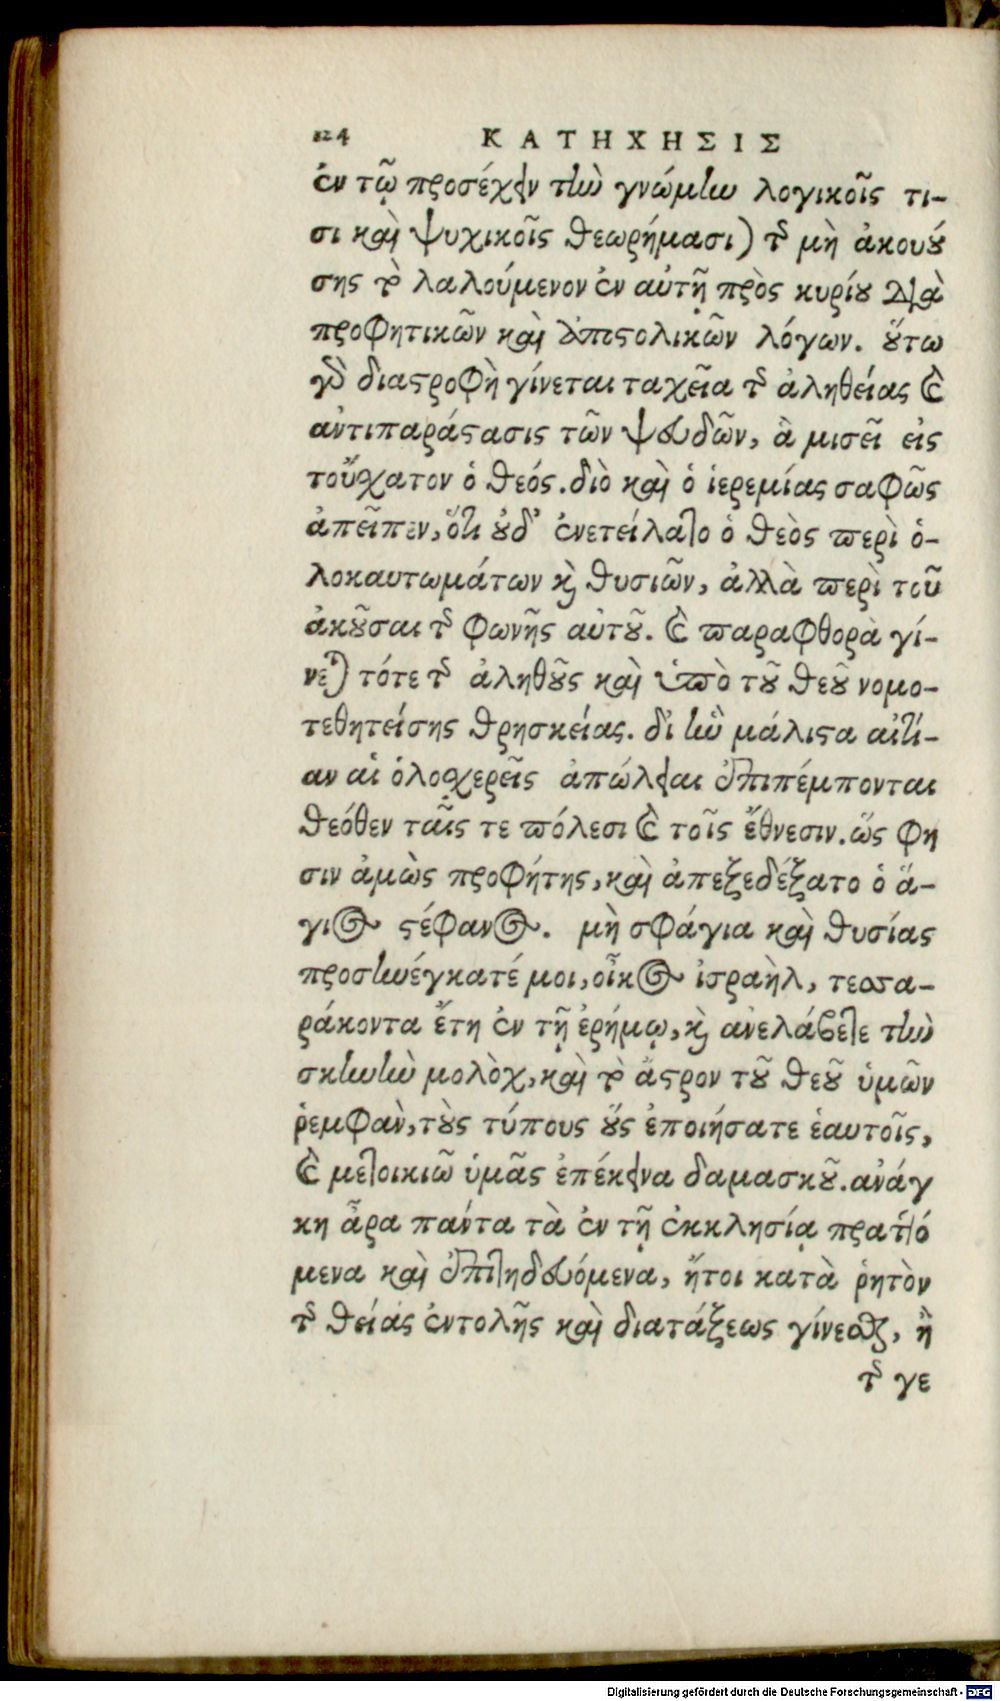 124 ΚΑΤΗΧΗΣΙΣ
ἐν τῷ προσέχειν τὴν γνώμην λογικοῖς τι-
σι καὶ ψυχικοῖς θεωρήμασι) τῆς μὴ ἀκουού
σης τὸ λαλούμενον ἐν αὐτῇ πρὸς κυρίου διὰ
προφητικῶν καὶ ἀποστολικῶν λόγων. οὕτω
γὰρ διαστροφὴ γίνεται ταχεῖα τῆς ἀληθείας καὶ
ἀντιπαράστασις τῶν ψευδῶν, ἃ μισεῖ εἰς
τοὔσχατον ὁ θεός. διὸ καὶ ὁ ἱερεμίας σαφῶς
ἀπεῖπεν, ὅτι οὐδ' ἐνετείλατο ὁ θεὸς περὶ ὁ-
λοκαυτωμάτων καὶ θυσιῶν, ἀλλὰ περὶ τοῦ
ἀκοῦσαι τῆς φωνῆς αὐτοῦ. καὶ παραφθορὰ γί-
νεται τότε τῆς ἀληθοῦς καὶ ὑπὸ τοῦ θεοῦ νομο-
τεθητείσης θρησκείας. δι ἣν μάλιστα αἰτί-
αν αἱ ὁλοσχερεῖς ἀπώλειαι ἐπιπέμπονται
θεόθεν ταῖς τε πόλεσι καὶ τοῖς ἔθνεσιν. ὥς φη
σιν ἀμὼς προφήτης, καὶ ἀπεξεδέξατο ὁ ἅ-
γιος στέφανος. μὴ σφάγια καὶ θυσίας
προσηνέγκατέ μοι, οἶκος ἰσραὴλ, τεσσα-
ράκοντα ἔτη ἐν τῇ ἐρήμῳ, καὶ ἀνελάβετε τὴν
σκηνὴν μολὸχ, καὶ τὸ ἄστρον τοῦ θεοῦ ὑμῶν
ῥεμφαὰν, τοὺς τύπους οὓς ἐποιήσατε ἑαυτοῖς,
καὶ μετοικιῶ ὑμᾶς ἐπέκεινα δαμασκοῦ. ἀνάγ
κη ἆρα πάντα τὰ ἐν τῇ ἐκκλησίᾳ πραττό
μενα καὶ ἐπιτηδευόμενα, ἤτοι κατὰ ῥητὸν
τῆς θείας ἐντολῆς καὶ διατάξεως γίνεσθαι, ἢ
τῆς γε
Digitalisierung gefördert durch die Deutsche Forschungsgemeinschaft - DFG